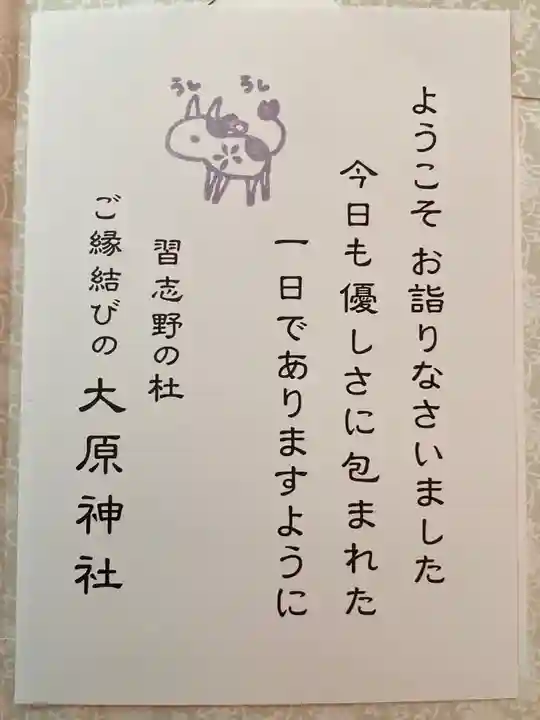 ようこそ お詣りなさいました
今日も優しさに包まれた
一日でありますように
うし うし
習志野の杜
ご縁結びの 大原神社